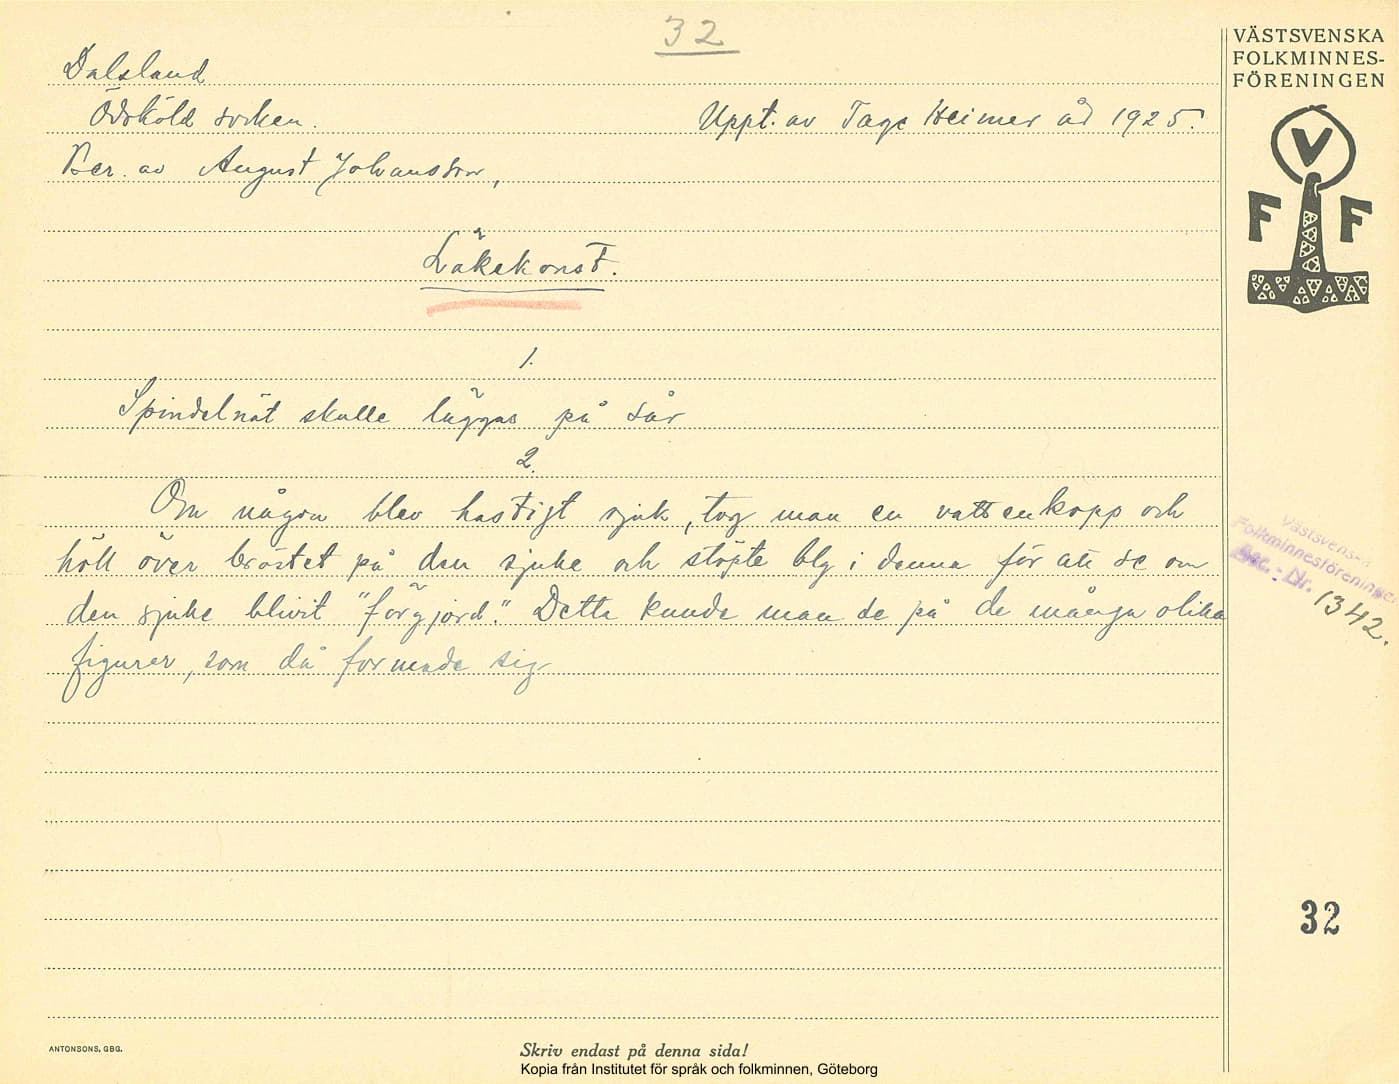 32
VÄSTSVENSKA
FOLKMINNES-
FÖRENINGEN
Dalsland
Ödsköld socken.
Uppt. av Tage Heimer år 1925.
Ber. av August Johansson,
V
F F
Läkekonst.
1.
Spindelnät skulle läggas på sår
2.
Om någon blev hastigt sjuk, tog man en vattenkopp och
höll över bröstet på den sjuke och stöpte bly i denna för att se om
den sjuke blivit "förgjord". Detta kunde man se på de många olika
figurer, som då formade sig
Västsvenska
Folkminnesföreningen
Acc.-Nr. 1342.
32
ANTONSONS, GBG.
Skriv endast på denna sida!
Kopia från Institutet för språk och folkminnen, Göteborg